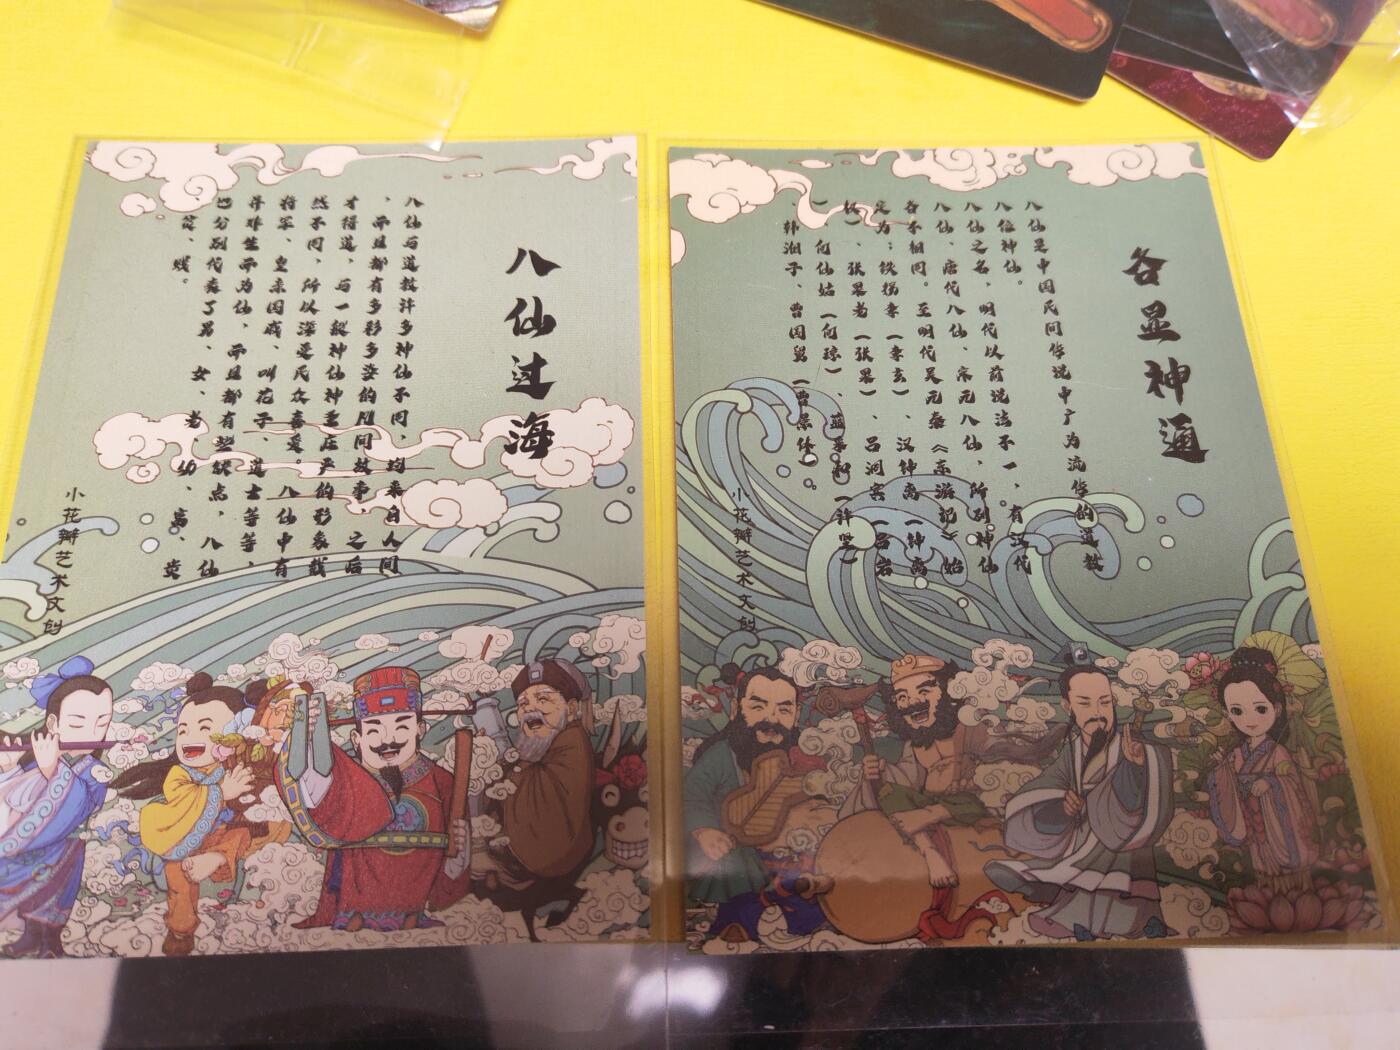 八仙过海
八仙与道教许多神仙不同，均来自人间
，而且都有多彩多姿的凡间故事，之后
才得道，与一般神仙神圣庄严的形象截
然不同，所以深受民众喜爱。八仙中有
将军、皇亲国戚、叫花子、道士等等，
并非生而为仙，而且都有些缺点，八仙
也分别代表了男、女、老、幼、富、贵
、贫、贱。
小花瓣艺术文创
各显神通
八仙是中国民间传说中广为流传的道教
八位神仙。
八仙之名，明代以前说法不一，有汉代
八仙、唐代八仙、宋元八仙，所列神仙
各不相同。至明代吴元泰《东游记》始
定为；铁拐李（李玄）、汉钟离（钟离
权）、张果老（张果）、吕洞宾（吕岩
）、何仙姑（何琼）、蓝采和（许坚）
、韩湘子、曹国舅（曹景休）。
小花瓣艺术文创